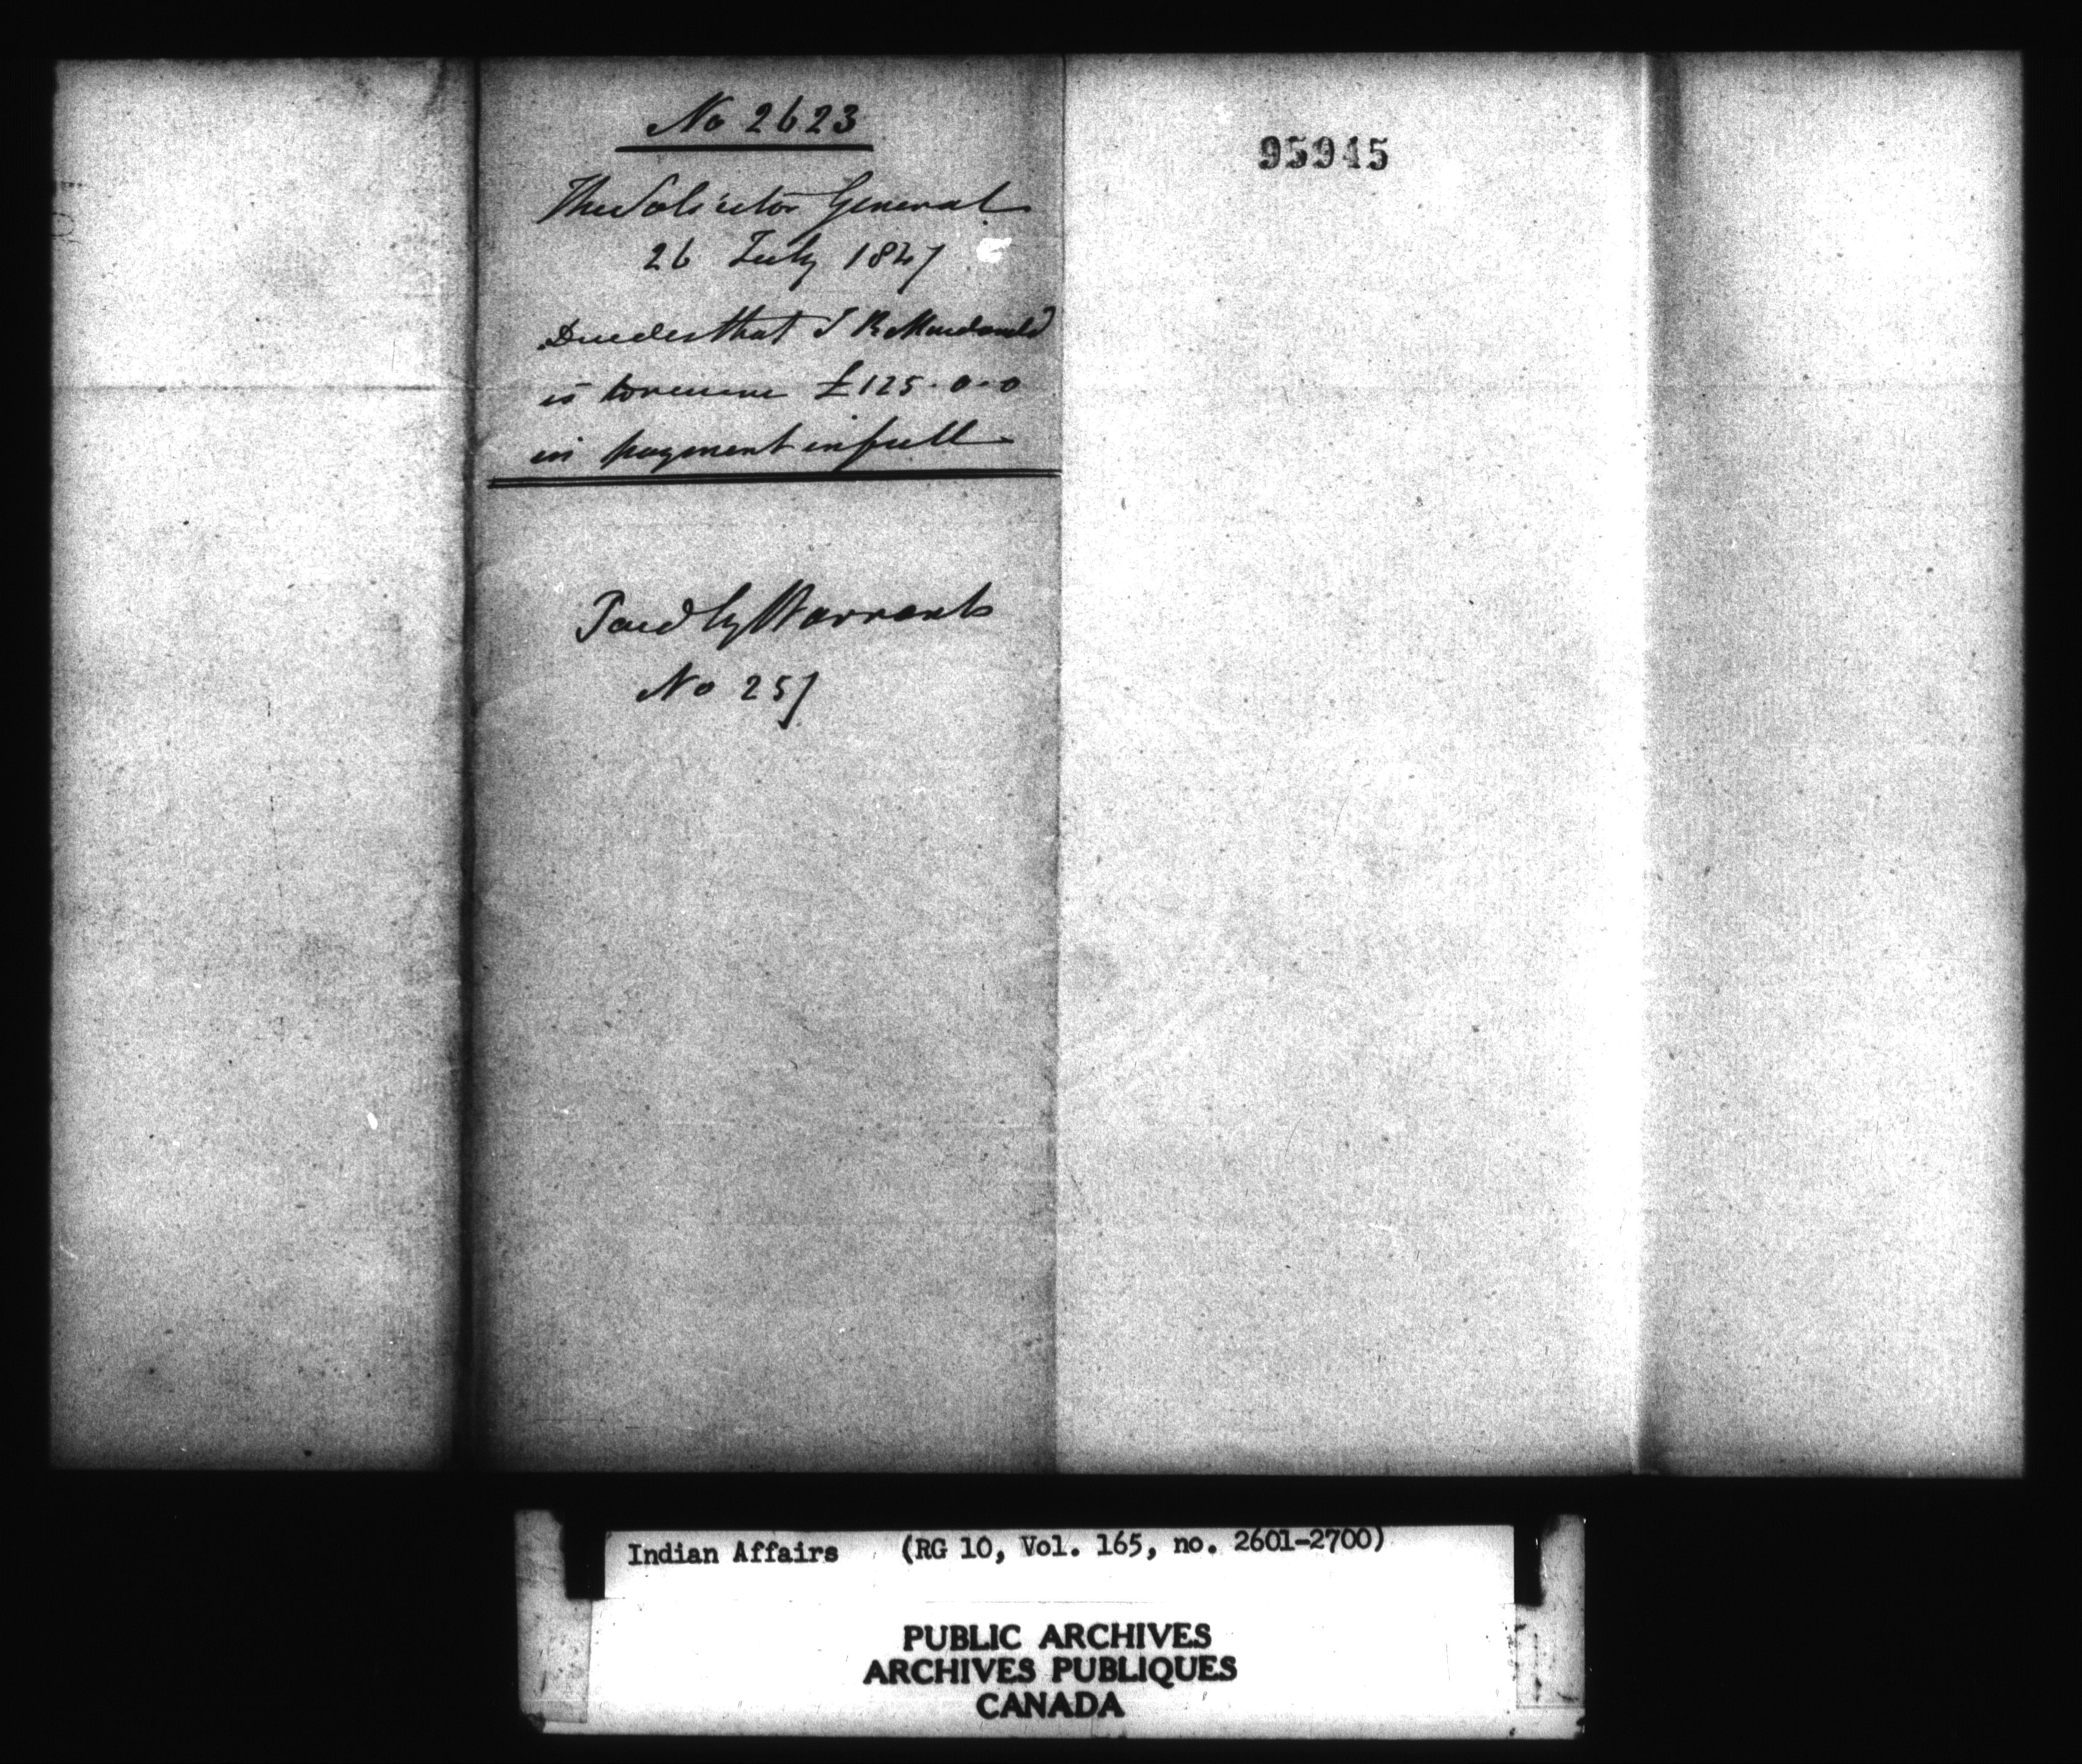 No 2623
The Solicitor General
26 July 1847
Decides that J R Macdonald
is to receive £125.0.0
in payment in full
Paid by Warrant
No 257
95945
Indian Affairs (RG 10, Vol. 165, no. 2601-2700)
PUBLIC ARCHIVES
ARCHIVES PUBLIQUES
CANADA